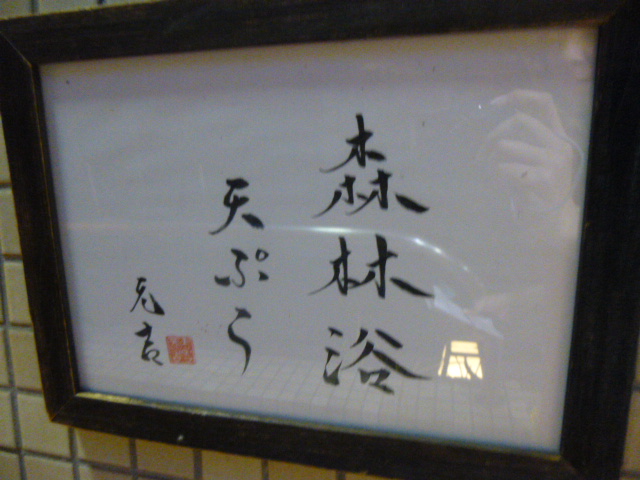 森林浴
天ぷら
元吉